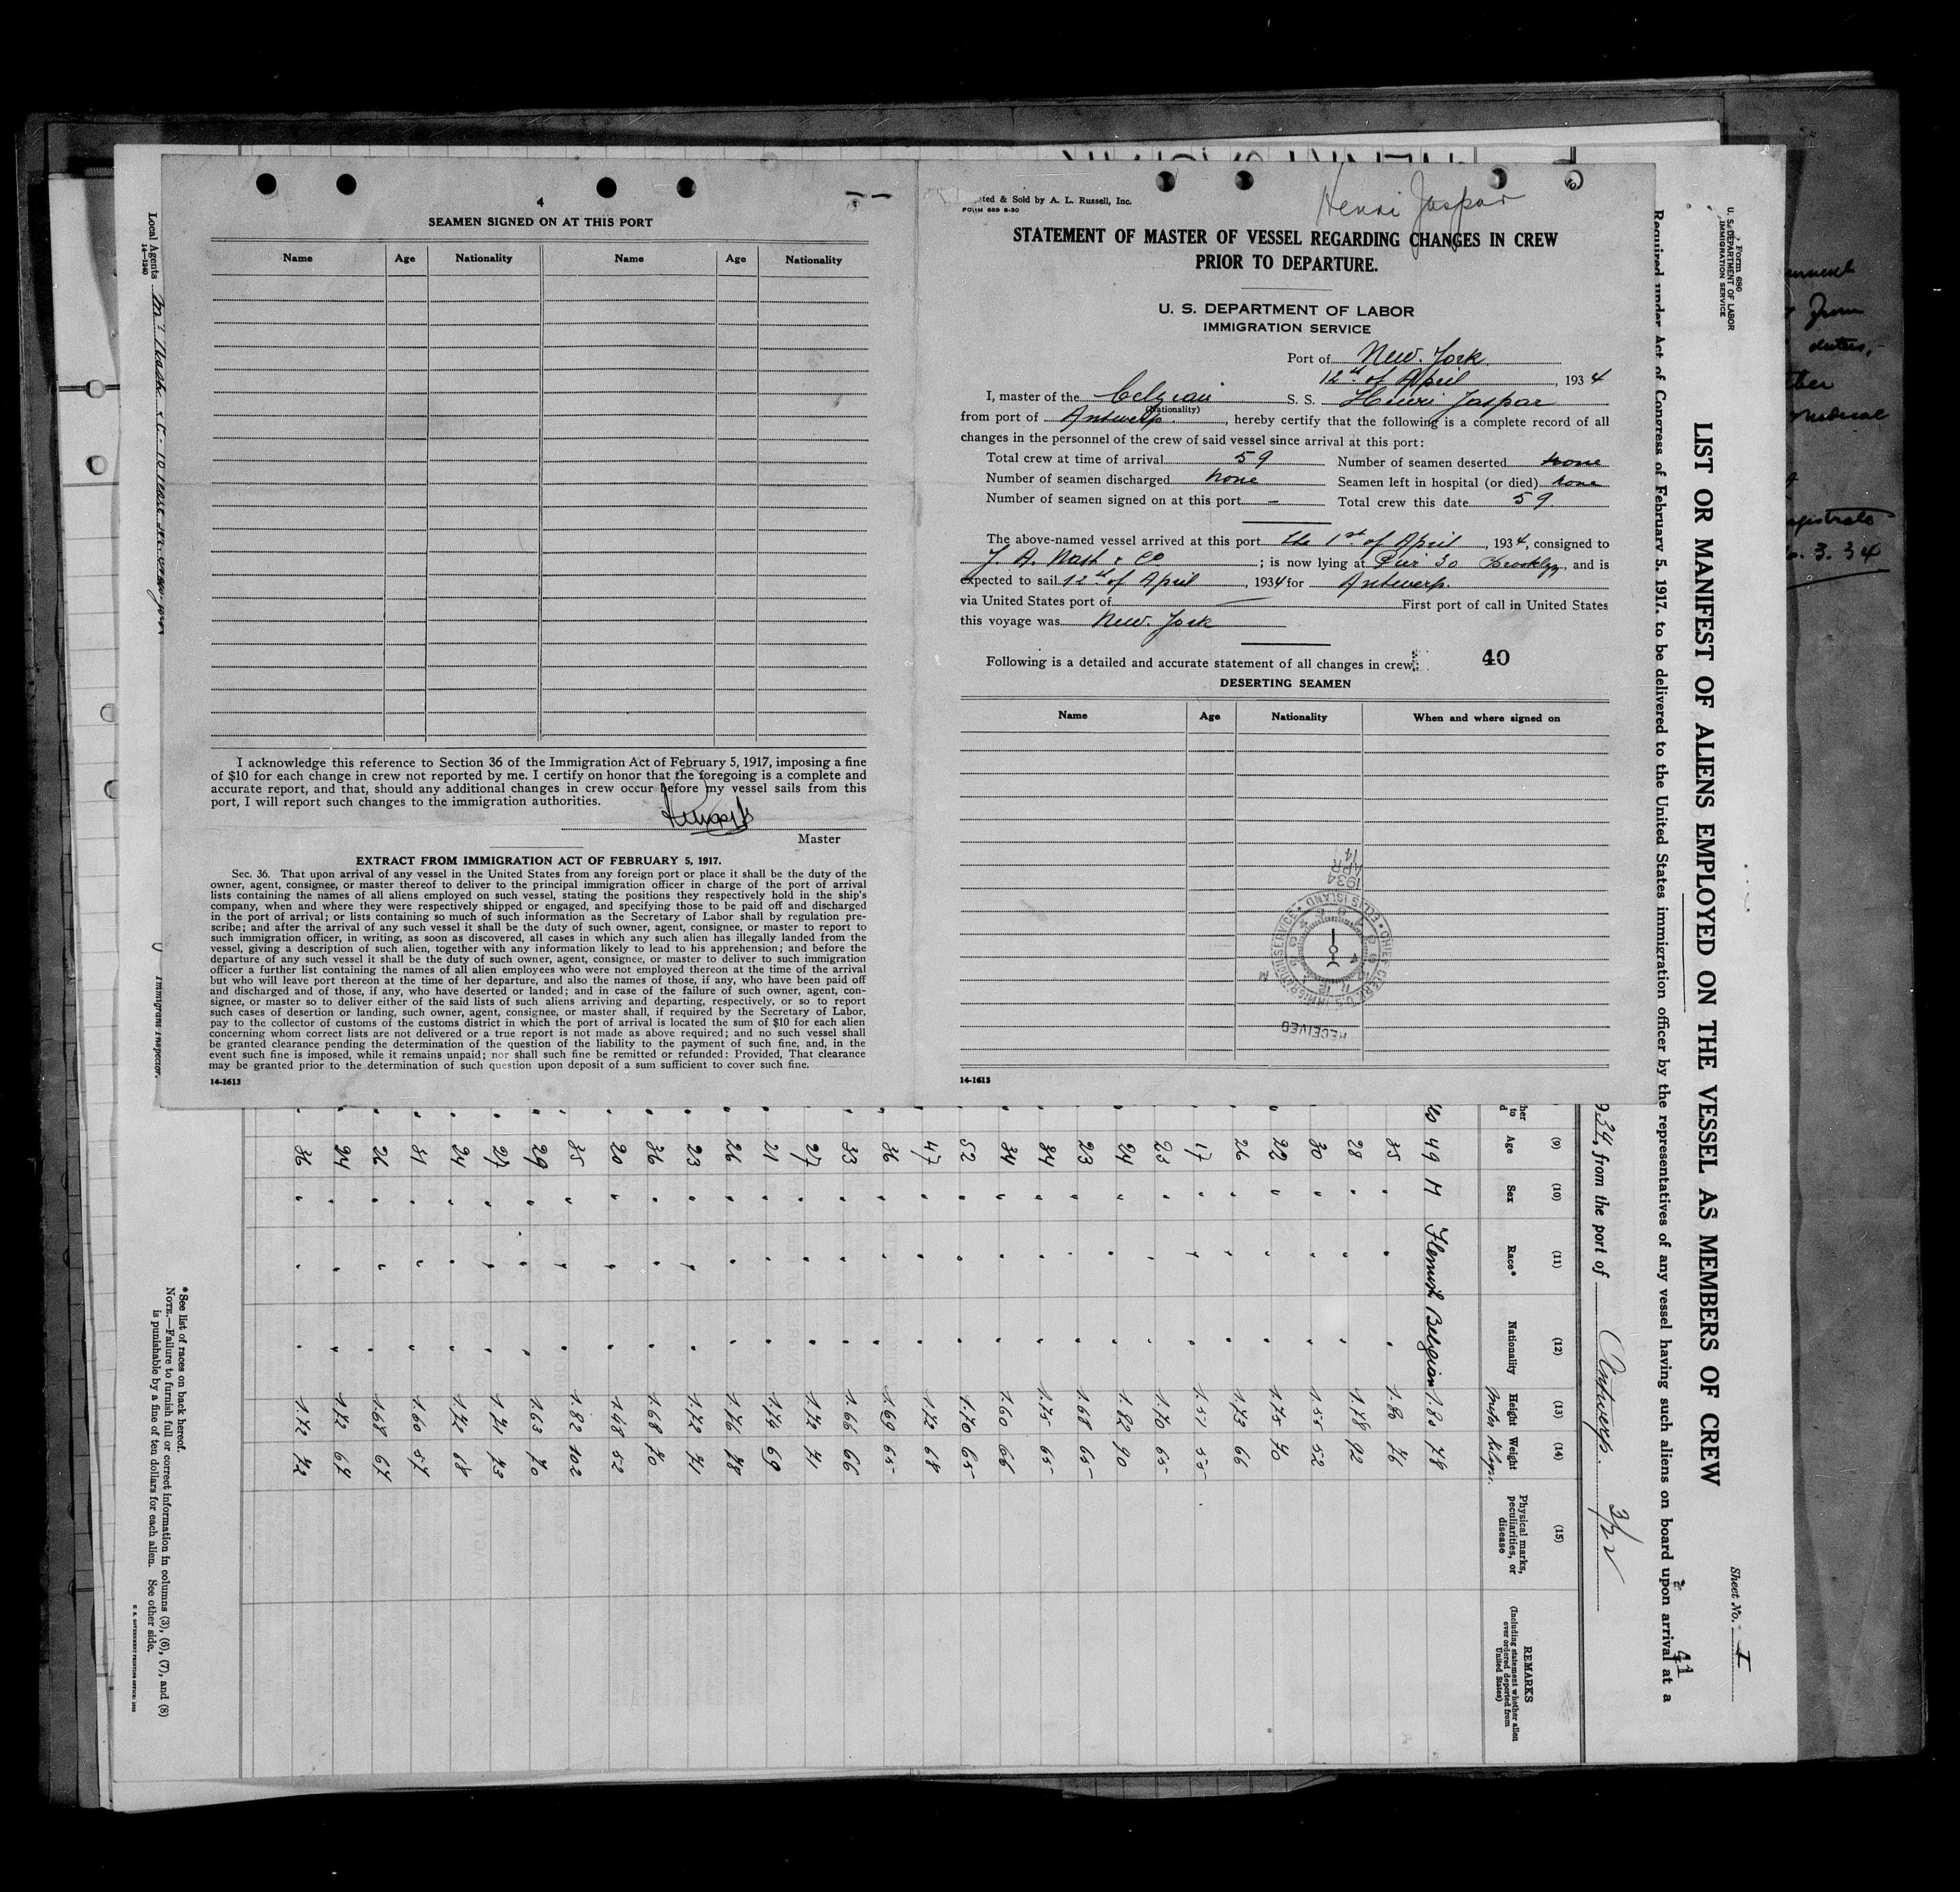 4
SEAMEN SIGNED ON AT THIS PORT
Name Age Nationality Name Age Nationality
I acknowledge this reference to Section 36 of the Immigration Act of February 5, 1917, imposing a fine
of $10 for each change in crew not reported by me. I certify on honor that the foregoing is a complete and
accurate report, and that, should any additional changes in crew occur before my vessel sails from this
port, I will report such changes to the immigration authorities.
Master
EXTRACT FROM IMMIGRATION ACT OF FEBRUARY 5, 1917.
Sec. 36. That upon arrival of any vessel in the United States from any foreign port or place it shall be the duty of the
owner, agent, consignee, or master thereof to deliver to the principal immigration officer in charge of the port of arrival
lists containing the names of all aliens employed on such vessel, stating the positions they respectively hold in the ship's
company, when and where they were respectively shipped or engaged, and specifying those to be paid off and discharged
in the port of arrival; or lists containing so much of such information as the Secretary of Labor shall by regulation pre-
scribe; and after the arrival of any such vessel it shall be the duty of such owner, agent, consignee, or master to report to
such immigration officer, in writing, as soon as discovered, all cases in which any such alien has illegally landed from the
vessel, giving a description of such alien, together with any information likely to lead to his apprehension; and before the
departure of any such vessel it shall be the duty of such owner, agent, consignee, or master to deliver to such immigration
officer a further list containing the names of all alien employees who were not employed thereon at the time of the arrival
but who will leave port thereon at the time of her departure, and also the names of those, if any, who have been paid off
and discharged and of those, if any, who have deserted or landed; and in case of the failure of such owner, agent, con-
signee, or master so to deliver either of the said lists of such aliens arriving and departing, respectively, or so to report
such cases of desertion or landing, such owner, agent, consignee, or master shall, if required by the Secretary of Labor,
pay to the collector of customs of the customs district in which the port of arrival is located the sum of $10 for each alien
concerning whom correct lists are not delivered or a true report is not made as above required; and no such vessel shall
be granted clearance pending the determination of the question of the liability to the payment of such fine, and, in the
event such fine is imposed, while it remains unpaid; nor shall such fine be remitted or refunded: Provided, That clearance
may be granted prior to the determination of such question upon deposit of a sum sufficient to cover such fine.
14-1613
ted & Sold by A. L. Russell, Inc.
FORM 689 8-30
Henri Jaspar
STATEMENT OF MASTER OF VESSEL REGARDING CHANGES IN CREW
PRIOR TO DEPARTURE.
U. S. DEPARTMENT OF LABOR
IMMIGRATION SERVICE
Port of New. York
12th of April, 1934
I, master of the Belgian S. S. Henri Jaspar
(Nationality)
from port of Antwerp., hereby certify that the following is a complete record of all
changes in the personnel of the crew of said vessel since arrival at this port:
Total crew at time of arrival 59 Number of seamen deserted none
Number of seamen discharged none Seamen left in hospital (or died) none
Number of seamen signed on at this port - Total crew this date 59.
The above-named vessel arrived at this port the 1st of April, 1934, consigned to
J. A. Nash & Co; is now lying at Pier 30 Brooklyn, and is
expected to sail 12th of April, 1934 for Antwerp.
via United States port of First port of call in United States
this voyage was New. York
Following is a detailed and accurate statement of all changes in crew: 40
DESERTING SEAMEN
Name Age Nationality When and where signed on
1934 APR 14
CHIEF CLERK U.S. IMMIGRATION SERVICE ELLIS ISLAND
RECEIVED
14-1613
Form 680
U. S. DEPARTMENT OF LABOR
IMMIGRATION SERVICE
Sheet No. I
LIST OR MANIFEST OF ALIENS EMPLOYED ON THE VESSEL AS MEMBERS OF CREW
41
Required under Act of Congress of February 5, 1917, to be delivered to the United States immigration officer by the representatives of any vessel having such aliens on board upon arrival at a
34, from the port of Antwerp
(9) (10) (11) (12) (13) (14) (15)
Age Sex Race* Nationality Height Weight Physical marks, peculiarities, or disease REMARKS
(Including statement whether alien ever ordered deported from United States)
49 M Flemish Belgian 1.80 78
35 1.80 76
28 1.78 92
30 1.55 52
22 1.75 70
26 1.73 66
17 1.51 55
23 1.70 65
24 1.82 90
23 1.68 65
34 1.75 65
34 1.60 66
52 1.70 65
47 1.72 68
36 1.69 65
33 1.66 66
27 1.72 71
21 1.74 69
26 1.76 78
23 1.72 71
36 1.68 70
20 1.48 52
35 1.82 102
29 1.63 70
27 1.71 73
24 1.72 68
31 1.60 57
26 1.68 67
24 1.72 67
36 1.72 72
*See list of races on back hereof.
NOTE.—Failure to furnish full or correct information in columns (3), (6), (7), and (8)
is punishable by a fine of ten dollars for each alien. See other side.
Local Agents
14-1240
Immigrant Inspector.